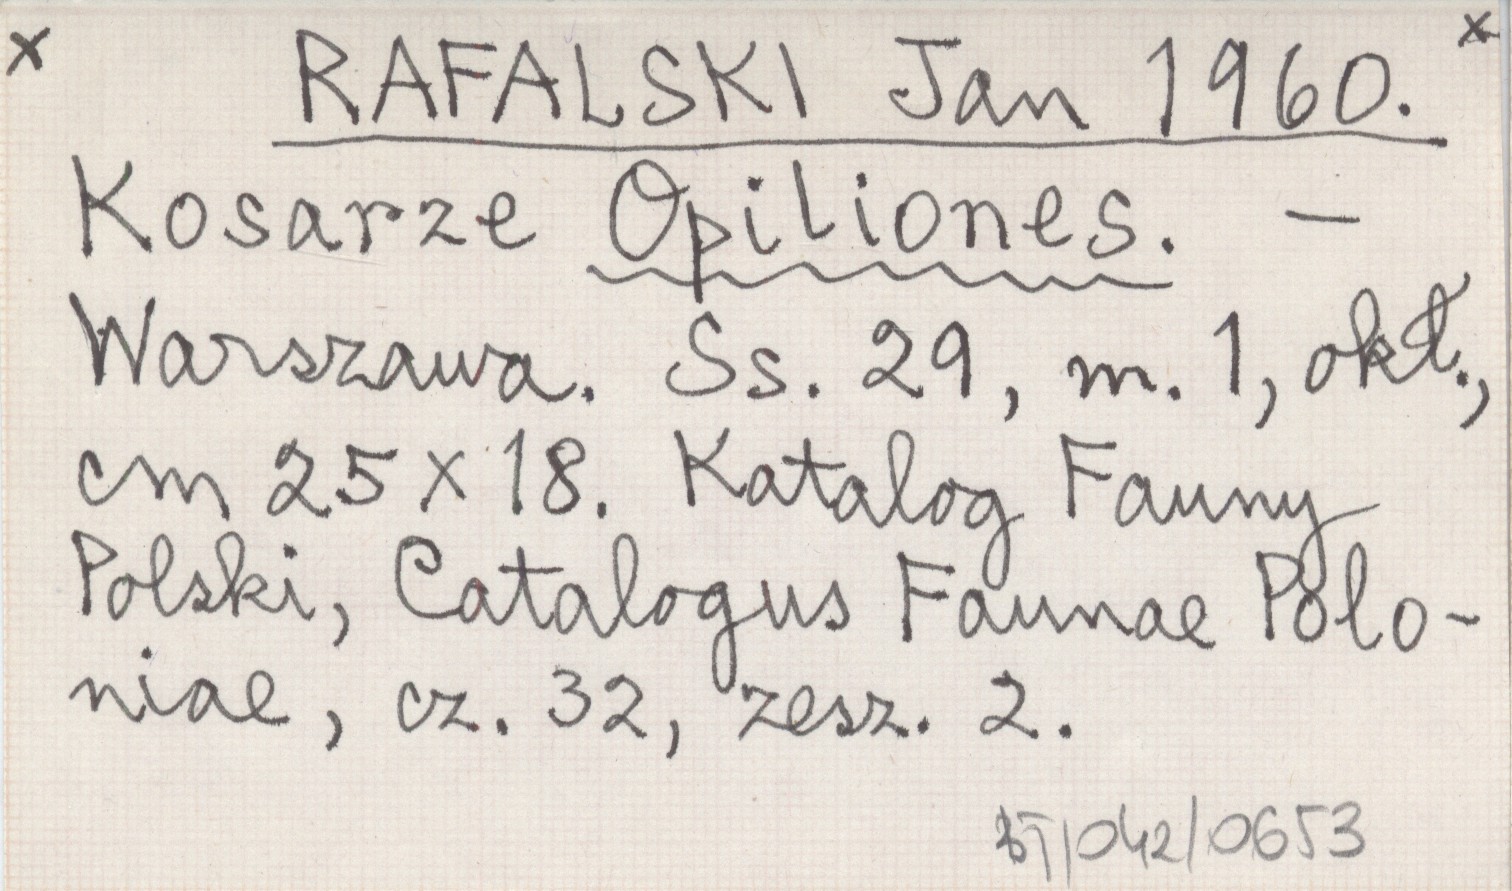 x RAFALSKI Jan 1960. x
Kosarze Opiliones. –
Warszawa. Ss. 29, m. 1, okł.,
cm 25 x 18. Katalog Fauny
Polski, Catalogus Faunae Polo-
niae, cz. 32, zesz. 2.
BT/042/0653